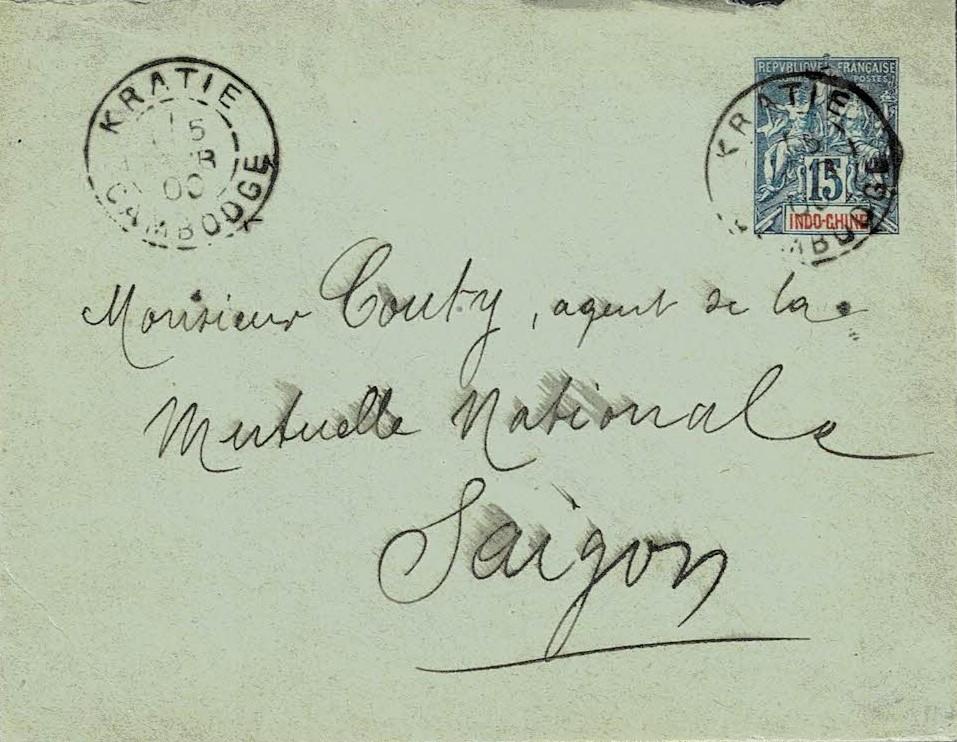 KRATIE
15
00
CAMBODGE
REPVBLIQVE FRANÇAISE
POSTES
KRATIE
15
15
INDO-CHINE
CAMBODGE
Monsieur Couty, agent de la
Mutuelle Nationale
Saïgon